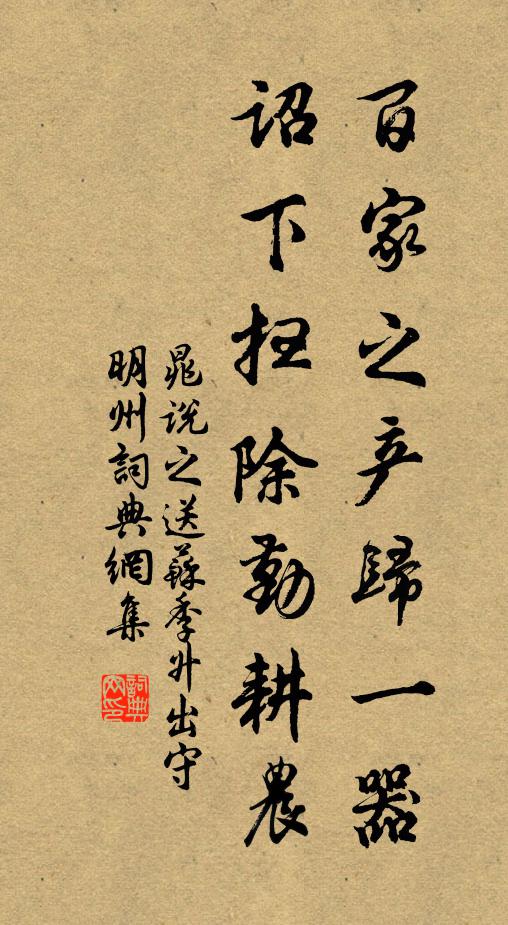 百家之产歸一器
詔下扫除勤耕農
晁说之送蘇季升出守
明州詞典網集
詞典网印